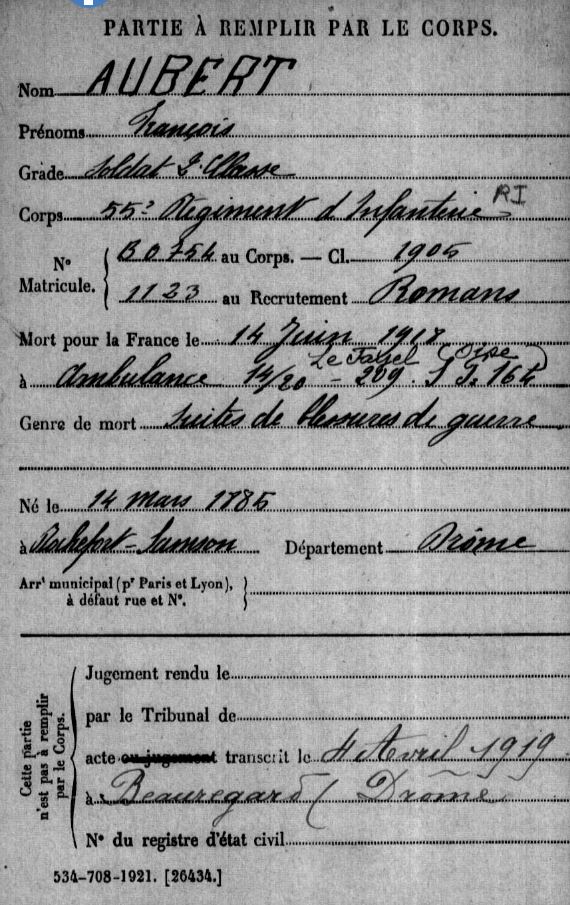 PARTIE À REMPLIR PAR LE CORPS.
Nom AUBERT
Prénoms François
Grade Soldat 2e Classe
Corps 55e Régiment d'Infanterie RI
N° Matricule. { B 0754 au Corps. — Cl. 1905
1123 au Recrutement Romans
Mort pour la France le 14 Juin 1918
Le Fayel (Oise)
à Ambulance 14/20 - 209. S P. 164
Genre de mort Suites de blessures de guerre
Né le 14 Mars 1785
à Rochefort-Samson Département Drôme
Arrt municipal (pr Paris et Lyon), }
à défaut rue et N°.
Cette partie n'est pas à remplir par le Corps.
Jugement rendu le
par le Tribunal de
acte ou jugement transcrit le 4 Avril 1919
à Beauregard (Drôme
N° du registre d'état civil
534-708-1921. [26434.]